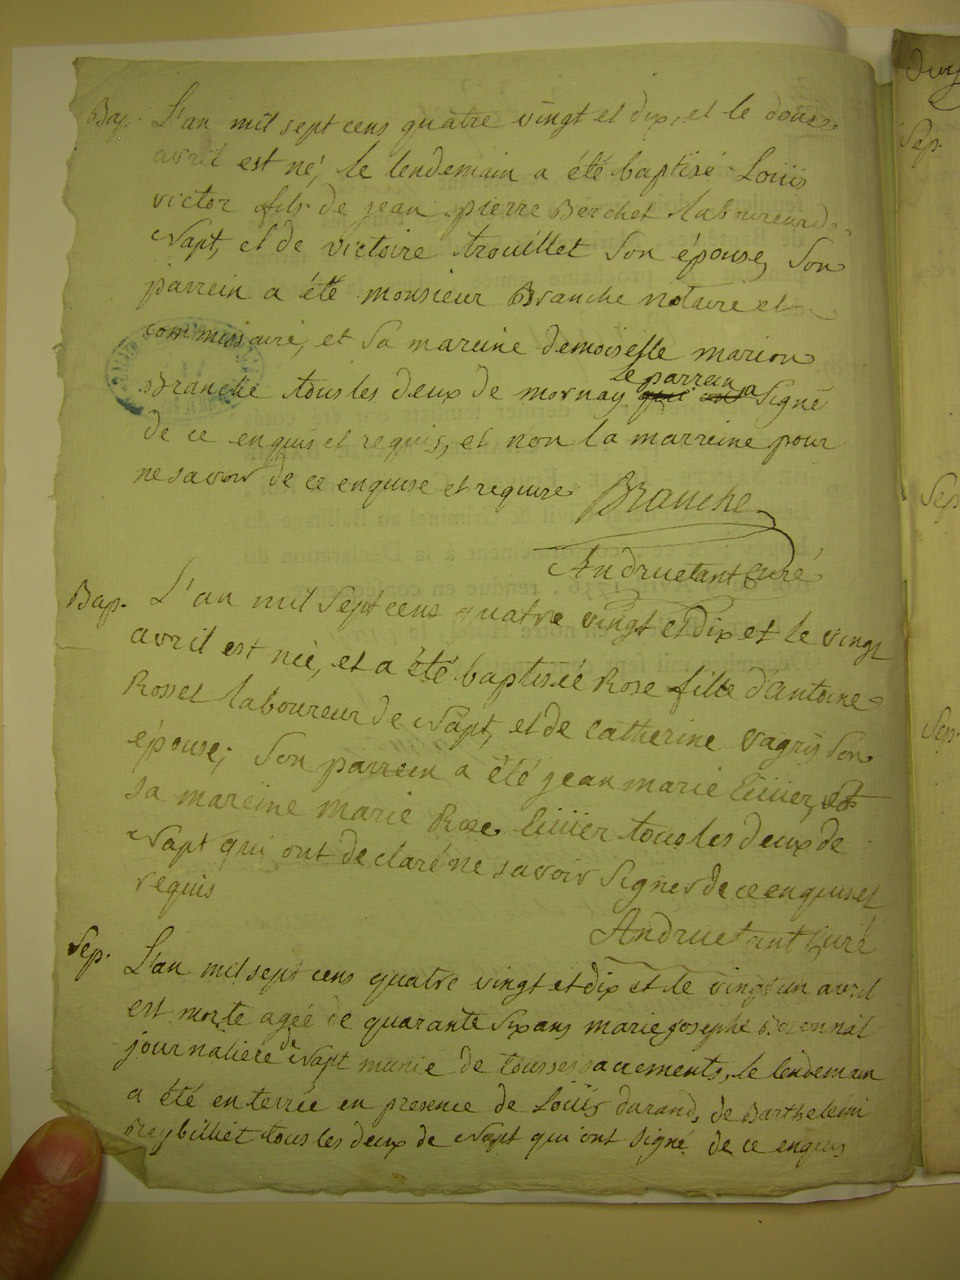 Bap. L'an mil sept cens quatre vingt et dix, et le douze
avril est né, le lendemain a été baptisé Loüis
victor fils de jean pierre Berchet laboureur de
Napt, et de victoire trouillet son épouse, son
parrein a été monsieur Branche notaire et
commissaire, et sa mareine demoiselle marion
Branche tous les deux de mornay le parrein a signé
de ce enquis et requis, et non la marreine pour
ne savoir de ce enquise et requise Branche
Andruetant Curé
Bap. L'an mil sept cens quatre vingt et dix et le vingt
avril est née, et a été baptisée Rose fille d'antoine
Rosset laboureur de Napt, et de catherine vagry son
épouse; son parrein a été jean marie
sa mareine marie Rose tous les deux de
Napt qui ont declaré ne savoir signer de ce enquis et
requis
Andruetant Curé
Sep. L'an mil sept cens quatre vingt et dix et le vingt un avril
est morte agée de quarante six ans marie josephe
journaliere de Napt munie de tous ses sacrements, le lendemain
a été enterrée en presence de Loüis durand, de Barthelemi
tous les deux de Napt qui ont signé de ce enquis
Sep.
Sep.
Sep.